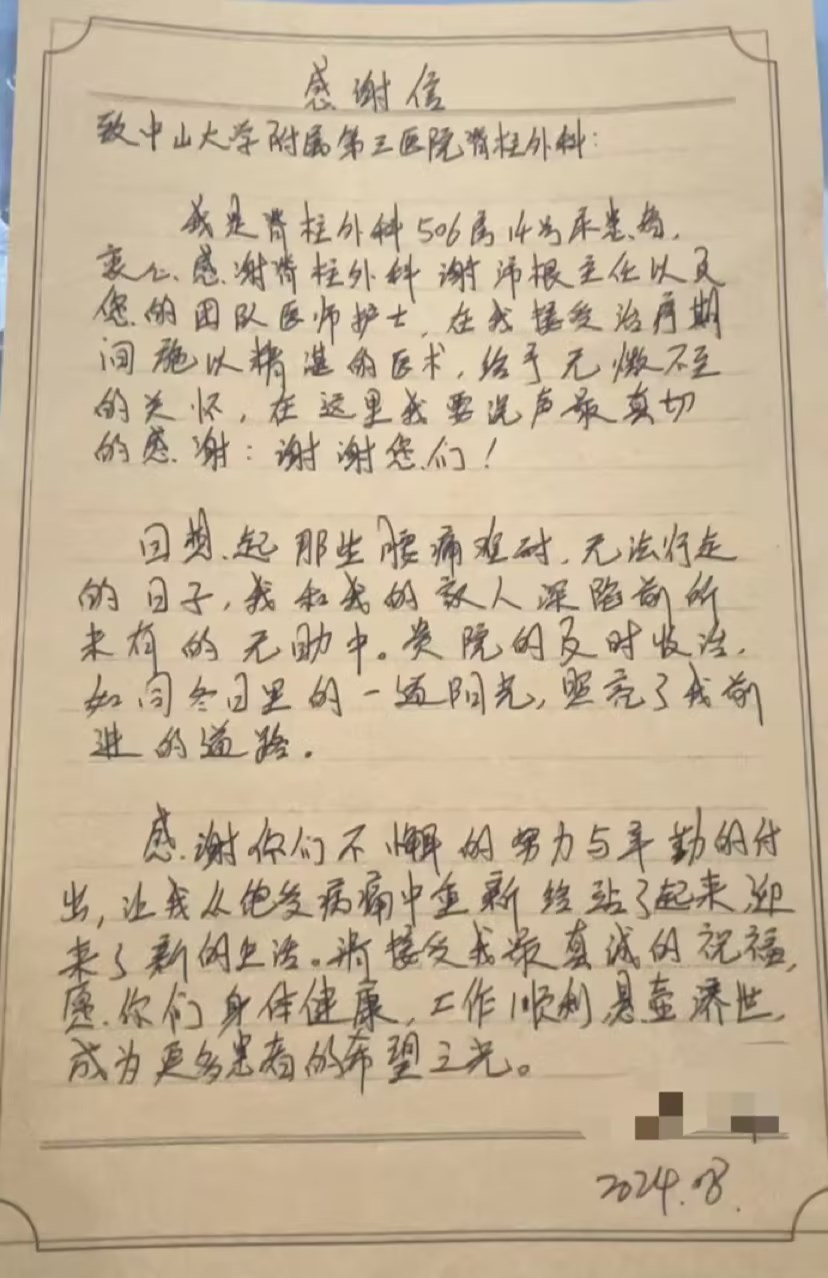 感谢信
致中山大学附属第三医院脊柱外科:
我是脊柱外科506房14号床患者,
衷心感谢脊柱外科谢沛根主任以及
您的团队医师护士,在我接受治疗期
间施以精湛的医术,给予无微不至
的关怀,在这里我要说声最真切
的感谢:谢谢您们!
回想起那些腰痛难耐,无法行走
的日子,我和我的家人深陷前所
未有的无助中。贵院的及时收治,
如同冬日里的一道阳光,照亮了我前
进的道路。
感谢你们不懈的努力与辛勤的付
出,让我从饱受病痛中重新给站了起来,迎
来了新的生活。请接受我最真诚的祝福,
愿你们身体健康,工作顺利,悬壶济世,
成为更多患者的希望之光。
2024.08.